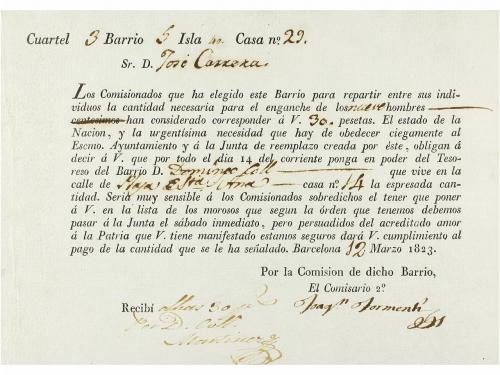 Cuartel 3 Barrio 5 Isla Casa nº 29.
Sr. D. José Carrera
Los Comisionados que ha elegido este Barrio para repartir entre sus indi-
viduos la cantidad necesaria para el enganche de los nueve hombres
han considerado corresponder á V. 30 pesetas. El estado de la
Nacion, y la urgentísima necesidad que hay de obedecer ciegamente al
Escmo. Ayuntamiento y á la Junta de reemplazo creada por éste, obligan á
decir á V. que por todo el dia 14 del corriente ponga en poder del Teso-
rero del Barrio D. Domingo Coll que vive en la
calle de Plaza Sta Ana casa nº 14 la espresada can-
tidad. Seria muy sensible á los Comisionados sobredichos el tener que poner
á V. en la lista de los morosos que segun la órden que tenemos debemos
pasar á la Junta el sábado inmediato, pero persuadidos del acreditado amor
á la Patria que V. tiene manifestado estamos seguros dará V. cumplimiento al
pago de la cantidad que se le ha señalado. Barcelona 12 Marzo 1823.
Por la Comision de dicho Barrio,
El Comisario 2º
Recibí dhas 30 Joaqn Formenti
Por D. Coll
Martinez